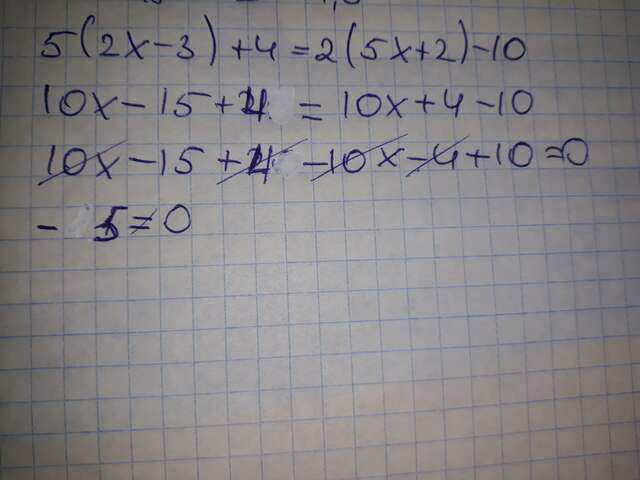 5(2x-3)+4=2(5x+2)-10
10x-15+4=10x+4-10
10x-15+4-10x-4+10=0
-5≠0